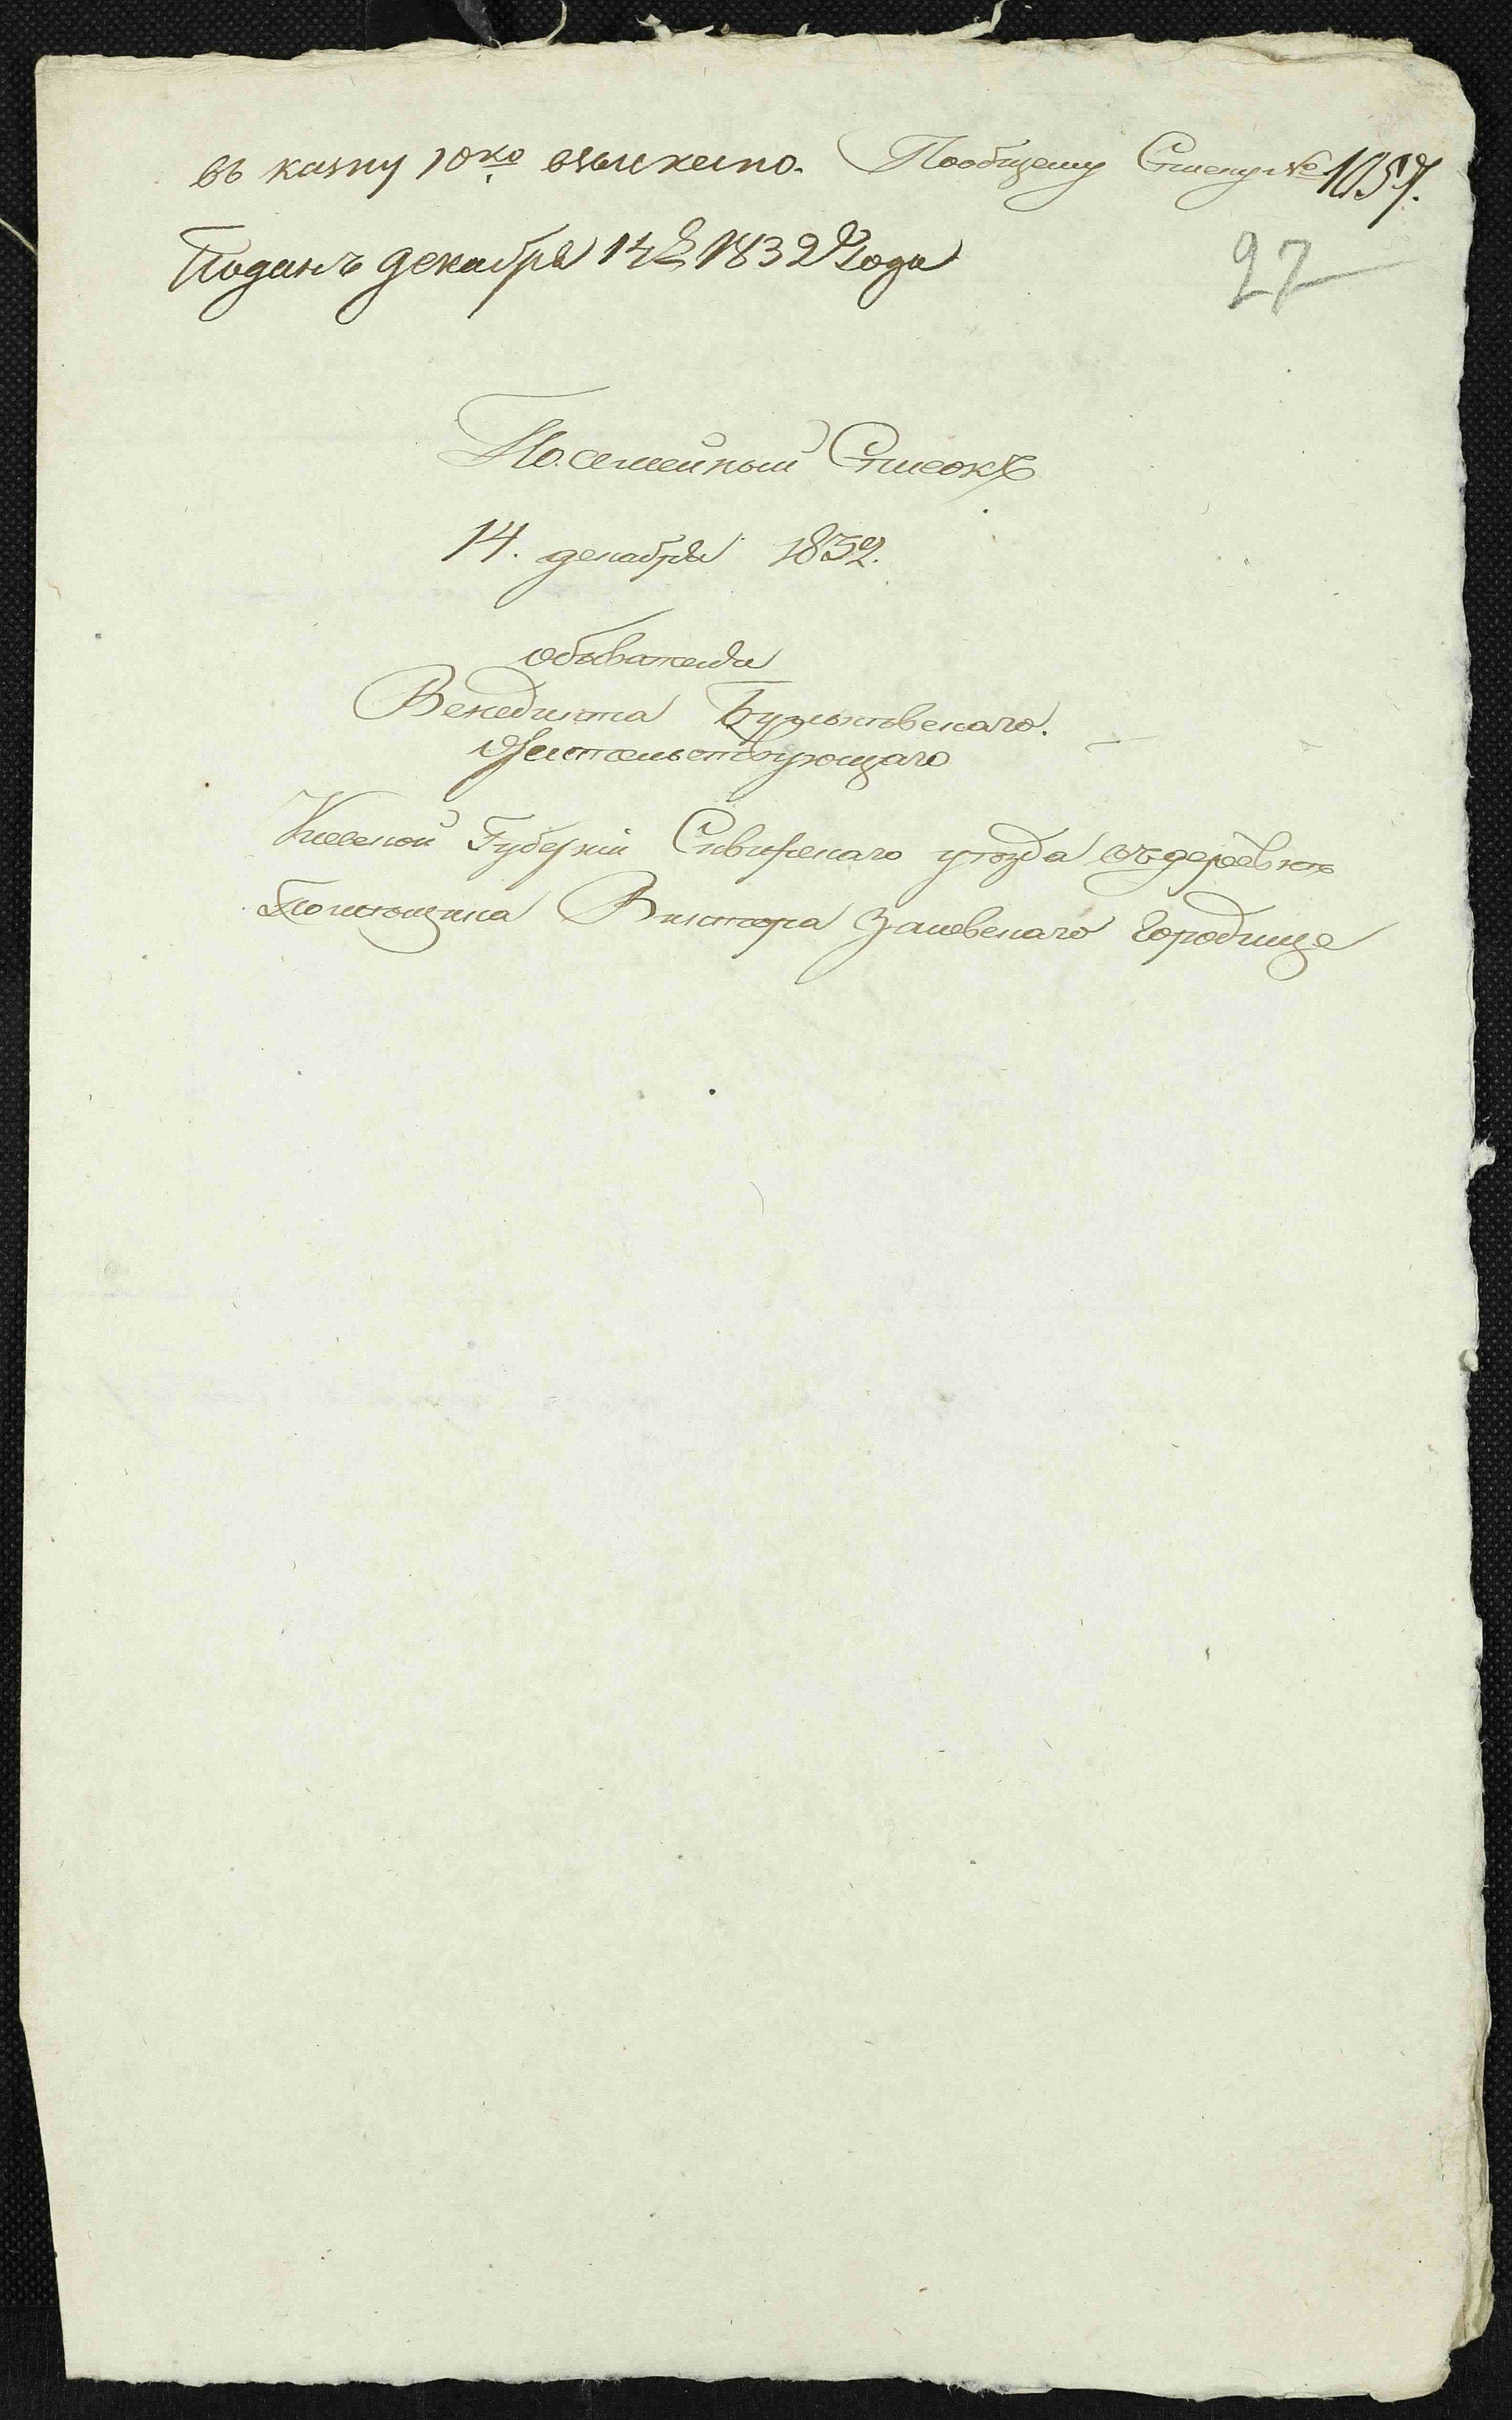 въ казну 10ко взыскано. Пообщему Списку № 1057.
Поданъ декабря 14 1832 Года
27
По семейный Списокъ
14. декабря 1832.
обывателя
Венедикта
жительствующаго
Киевской Губерніи Сквирскаго уезда въ деревнѣ
Помѣщика Виктора Залевскаго Городище